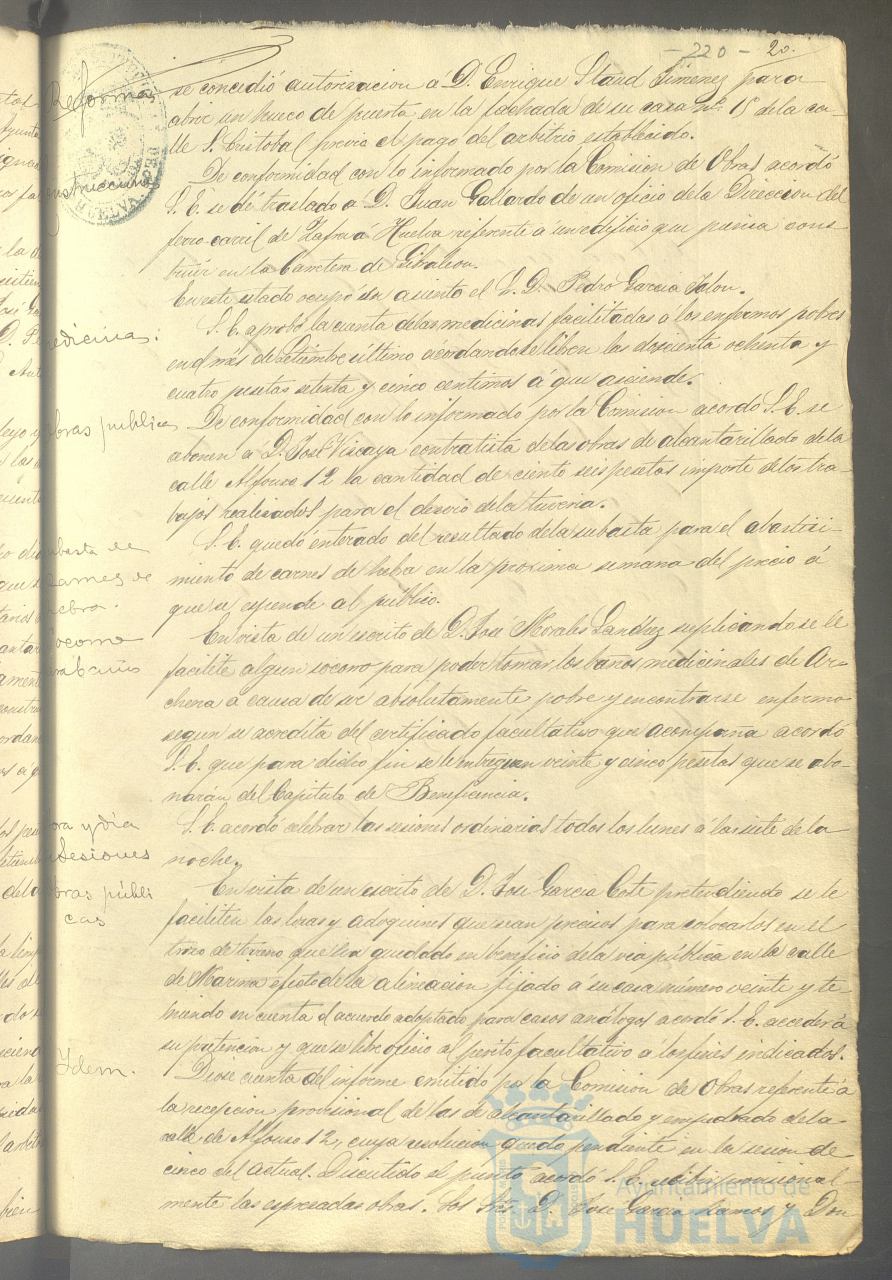 - 220 - 20.
Reformas
se concedió autorizacion a D. Enrique Stand Jimenez para
abrir un hueco de puerta en la fachada de su casa nº 15 de la ca-
lle S. Cristobal previo el pago del arbitrio establecido.
De conformidad con lo informado por la Comision de Obras acordó
S. E. se dé traslado a D. Juan Gallardo de un oficio de la Direccion del
ferro-carril de Zafra á Huelva referente á un edificio que piensa cons-
truir en la Carretera de Gibraleon.
En este estado ocupó su asiento el S. D. Pedro Garcia Jalon.
edicinas.
S. E. aprobó la cuenta de las medicinas facilitadas a los enfermos pobres
en el mes de Setiembre último acordandose se libren las doscienta ochenta y
cuatro pesetas setenta y cinco centimos á que asciende.
Obras publicas
De conformidad con lo informado por la Comision acordó S. E. se
abonen á D. José Viscaya contratista de las obras de alcantarillado de la
calle Alfonso 12 la cantidad de ciento seis pesetas importe de los tra-
bajos realizados para el desvio de la tuveria.
ubasta de
carnes de
hebra.
S. E. quedó enterado del resultado de la subasta para el abasteci-
miento de carnes de hebra en la proxima semana del precio á
que se espende al público.
Socorro
para baños
En vista de un escrito de D. José Morales Sanchez suplicando se le
facilite algun socorro para poder tomar los baños medicinales de Ar-
chena a causa de ser absolutamente pobre y encontrarse enfermo
segun se acredita del certificado facultativo que acompaña acordó
S. E. que para dicho fin se le entreguen veinte y cinco pesetas que se abo-
narán del Capitulo de Beneficencia.
ora y dia
sesiones
S. E. acordó celebrar las sesiones ordinarias todos los lunes á las siete de la
noche.
Obras públi
cas
En vista de un escrito de D. José Garcia Coste pretendiendo se le
faciliten las losas y adoquines que sean precisos para colocarlos en el
trozo de terreno que ha quedado en beneficio de la via pública en la calle
de Marina efecto de la alineacion fijado á su casa número veinte y te-
niendo en cuenta el acuerdo adoptado para casos análogos acordó S. E. acceder á
su pretencion y que se libre oficio al perito facultativo a los fines indicados.
Idem.
Diose cuenta del informe emitido por la Comision de Obras referente á
la recepcion provisional de las de alcantarillado y empedrado de la
calle de Alfonso 12, cuya resolucion quedó pendiente en la sesion de
cinco del actual. Discutido el punto acordó S. E. recibir provisional-
mente las espresadas obras. Los Sres. D. José Garcia Ramos y Don
Ayuntamiento de
HUELVA